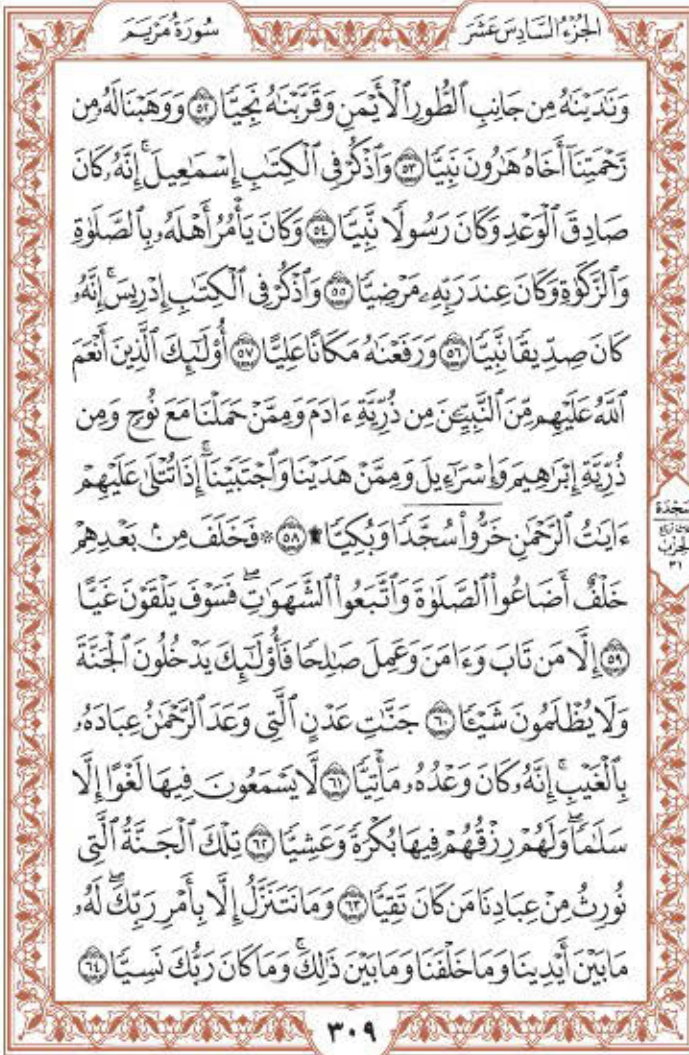 الجُزْءُ السَّادِسَ عَشَرَ
سُورَةُ مَرْيَمَ
وَنَٰدَيْنَٰهُ مِن جَانِبِ ٱلطُّورِ ٱلْأَيْمَنِ وَقَرَّبْنَٰهُ نَجِيًّا ۝٥٢ وَوَهَبْنَا لَهُۥ مِن
رَّحْمَتِنَآ أَخَاهُ هَٰرُونَ نَبِيًّا ۝٥٣ وَٱذْكُرْ فِى ٱلْكِتَٰبِ إِسْمَٰعِيلَ ۚ إِنَّهُۥ كَانَ
صَادِقَ ٱلْوَعْدِ وَكَانَ رَسُولًا نَّبِيًّا ۝٥٤ وَكَانَ يَأْمُرُ أَهْلَهُۥ بِٱلصَّلَوٰةِ
وَٱلزَّكَوٰةِ وَكَانَ عِندَ رَبِّهِۦ مَرْضِيًّا ۝٥٥ وَٱذْكُرْ فِى ٱلْكِتَٰبِ إِدْرِيسَ ۚ إِنَّهُۥ
كَانَ صِدِّيقًا نَّبِيًّا ۝٥٦ وَرَفَعْنَٰهُ مَكَانًا عَلِيًّا ۝٥٧ أُو۟لَٰٓئِكَ ٱلَّذِينَ أَنْعَمَ
ٱللَّهُ عَلَيْهِم مِّنَ ٱلنَّبِيِّۦنَ مِن ذُرِّيَّةِ ءَادَمَ وَمِمَّنْ حَمَلْنَا مَعَ نُوحٍ وَمِن
ذُرِّيَّةِ إِبْرَٰهِيمَ وَإِسْرَٰٓءِيلَ وَمِمَّنْ هَدَيْنَا وَٱجْتَبَيْنَآ ۚ إِذَا تُتْلَىٰ عَلَيْهِمْ
ءَايَٰتُ ٱلرَّحْمَٰنِ خَرُّوا۟ سُجَّدًا وَبُكِيًّا ۩ ۝٥٨ ۞ فَخَلَفَ مِنۢ بَعْدِهِمْ
خَلْفٌ أَضَاعُوا۟ ٱلصَّلَوٰةَ وَٱتَّبَعُوا۟ ٱلشَّهَوَٰتِ ۖ فَسَوْفَ يَلْقَوْنَ غَيًّا
۝٥٩ إِلَّا مَن تَابَ وَءَامَنَ وَعَمِلَ صَٰلِحًا فَأُو۟لَٰٓئِكَ يَدْخُلُونَ ٱلْجَنَّةَ
وَلَا يُظْلَمُونَ شَيْـًٔا ۝٦٠ جَنَّٰتِ عَدْنٍ ٱلَّتِى وَعَدَ ٱلرَّحْمَٰنُ عِبَادَهُۥ
بِٱلْغَيْبِ ۚ إِنَّهُۥ كَانَ وَعْدُهُۥ مَأْتِيًّا ۝٦١ لَّا يَسْمَعُونَ فِيهَا لَغْوًا إِلَّا
سَلَٰمًا ۖ وَلَهُمْ رِزْقُهُمْ فِيهَا بُكْرَةً وَعَشِيًّا ۝٦٢ تِلْكَ ٱلْجَنَّةُ ٱلَّتِى
نُورِثُ مِنْ عِبَادِنَا مَن كَانَ تَقِيًّا ۝٦٣ وَمَا نَتَنَزَّلُ إِلَّا بِأَمْرِ رَبِّكَ ۖ لَهُۥ
مَا بَيْنَ أَيْدِينَا وَمَا خَلْفَنَا وَمَا بَيْنَ ذَٰلِكَ ۚ وَمَا كَانَ رَبُّكَ نَسِيًّا ۝٦٤
سَجْدَة
الحِزْب
٣١
٣٠٩